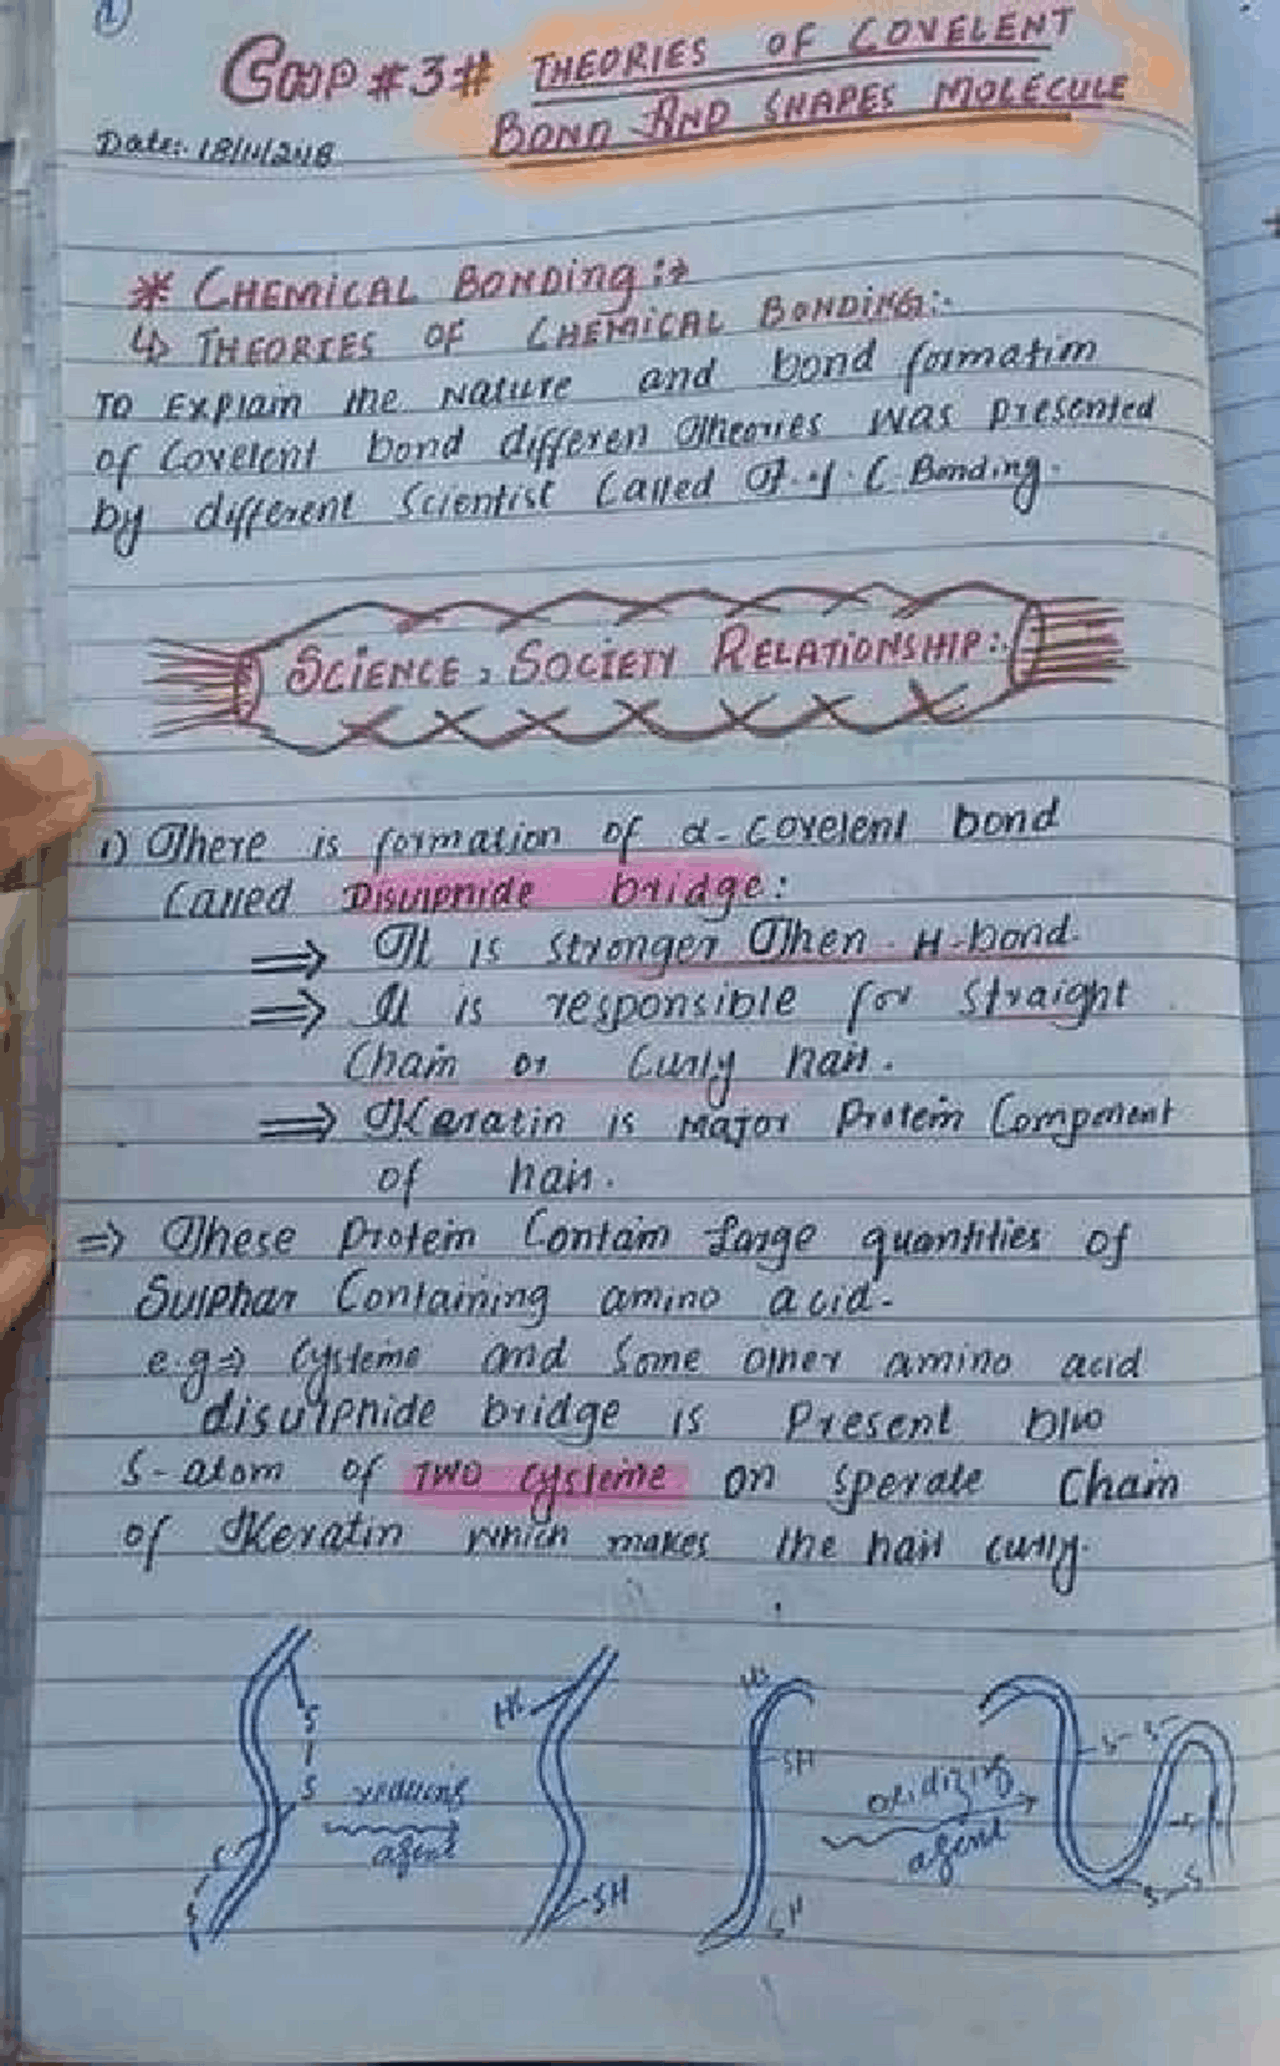 #3# THEORIES OF COVELENT
BOND AND SHAPES MOLECULE
Date:-
* CHEMICAL BONDing :→
↳ THEORIES OF CHEMICAL BONDING:-
TO Explain the Nature and bond formation
of Covelent bond differen Theories was presented
by different Scientist Called C. Bonding.
SCIENCE, SOCIETY RELATIONSHIP:-
1) There is formation of a-covelent bond
Called Disulphide bridge:
⇒ It is stronger Then H-bond.
⇒ It is responsible for straight
Chain or Curly hair.
⇒ Keratin is Major Protein Component
of hair.
⇒ These Protein Contain large quantities of
Sulphar Containing amino acid.
e.g⇒ Cysteine and Some other amino acid
disulphide bridge is Present b/w
S-atom of TWO cysteine on sperate Chain
of Keratin which makes the hair curly.
S
S
reducing
agent
SH
SH
SH
oxidizing
agent
S-S
S-S